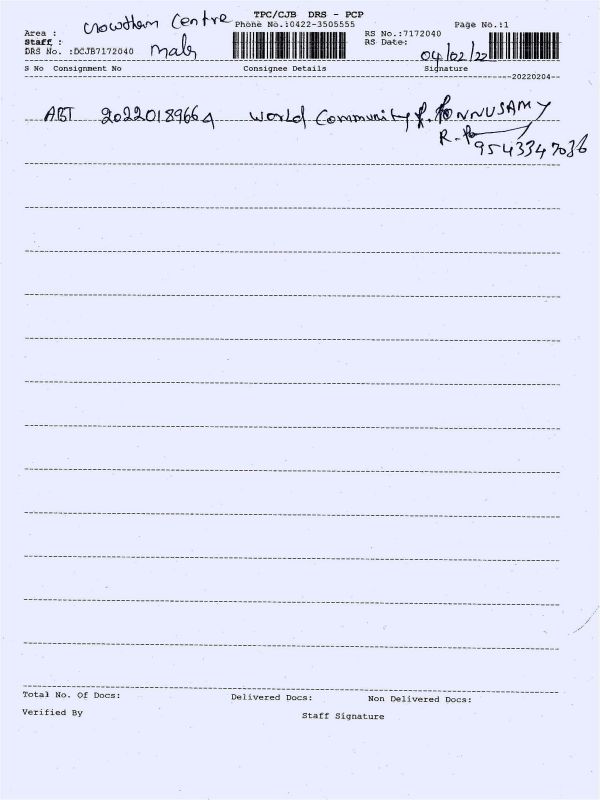 TPC/CJB DRS - PCP
Crowthem Centre Phone No.:0422-3505555 Page No.:1
Area : RS No.:7172040
Staff : RS Date:
DRS No. :DCJB7172040 04/02/22
S No Consignment No Consignee Details Signature
20220204
ABT 20220189664 World Community R. PONNUSAMY
9543347036
Total No. Of Docs: Delivered Docs: Non Delivered Docs:
Verified By Staff Signature